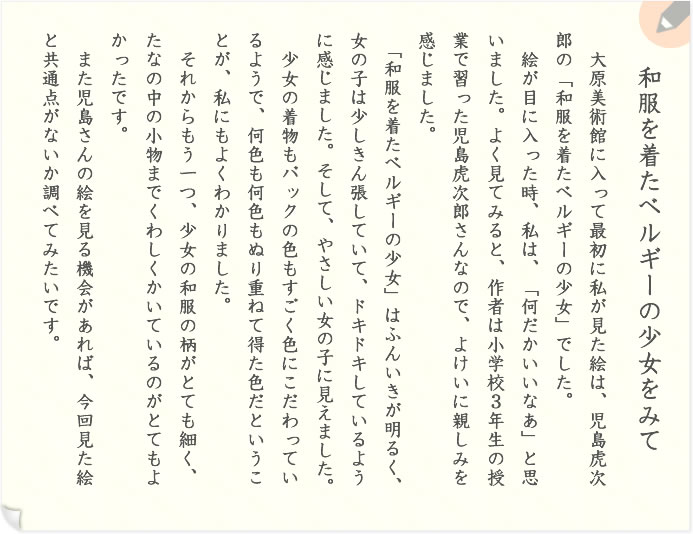 和服を着たベルギーの少女をみて
大原美術館に入って最初に私が見た絵は、児島虎次
郎の「和服を着たベルギーの少女」でした。
絵が目に入った時、私は、「何だかいいなあ」と思
いました。よく見てみると、作者は小学校３年生の授
業で習った児島虎次郎さんなので、よけいに親しみを
感じました。
「和服を着たベルギーの少女」はふんいきが明るく、
女の子は少しきん張していて、ドキドキしているよう
に感じました。そして、やさしい女の子に見えました。
少女の着物もバックの色もすごく色にこだわってい
るようで、何色も何色もぬり重ねて得た色だというこ
とが、私にもよくわかりました。
それからもう一つ、少女の和服の柄がとても細く、
たなの中の小物までくわしくかいているのがとてもよ
かったです。
また児島さんの絵を見る機会があれば、今回見た絵
と共通点がないか調べてみたいです。